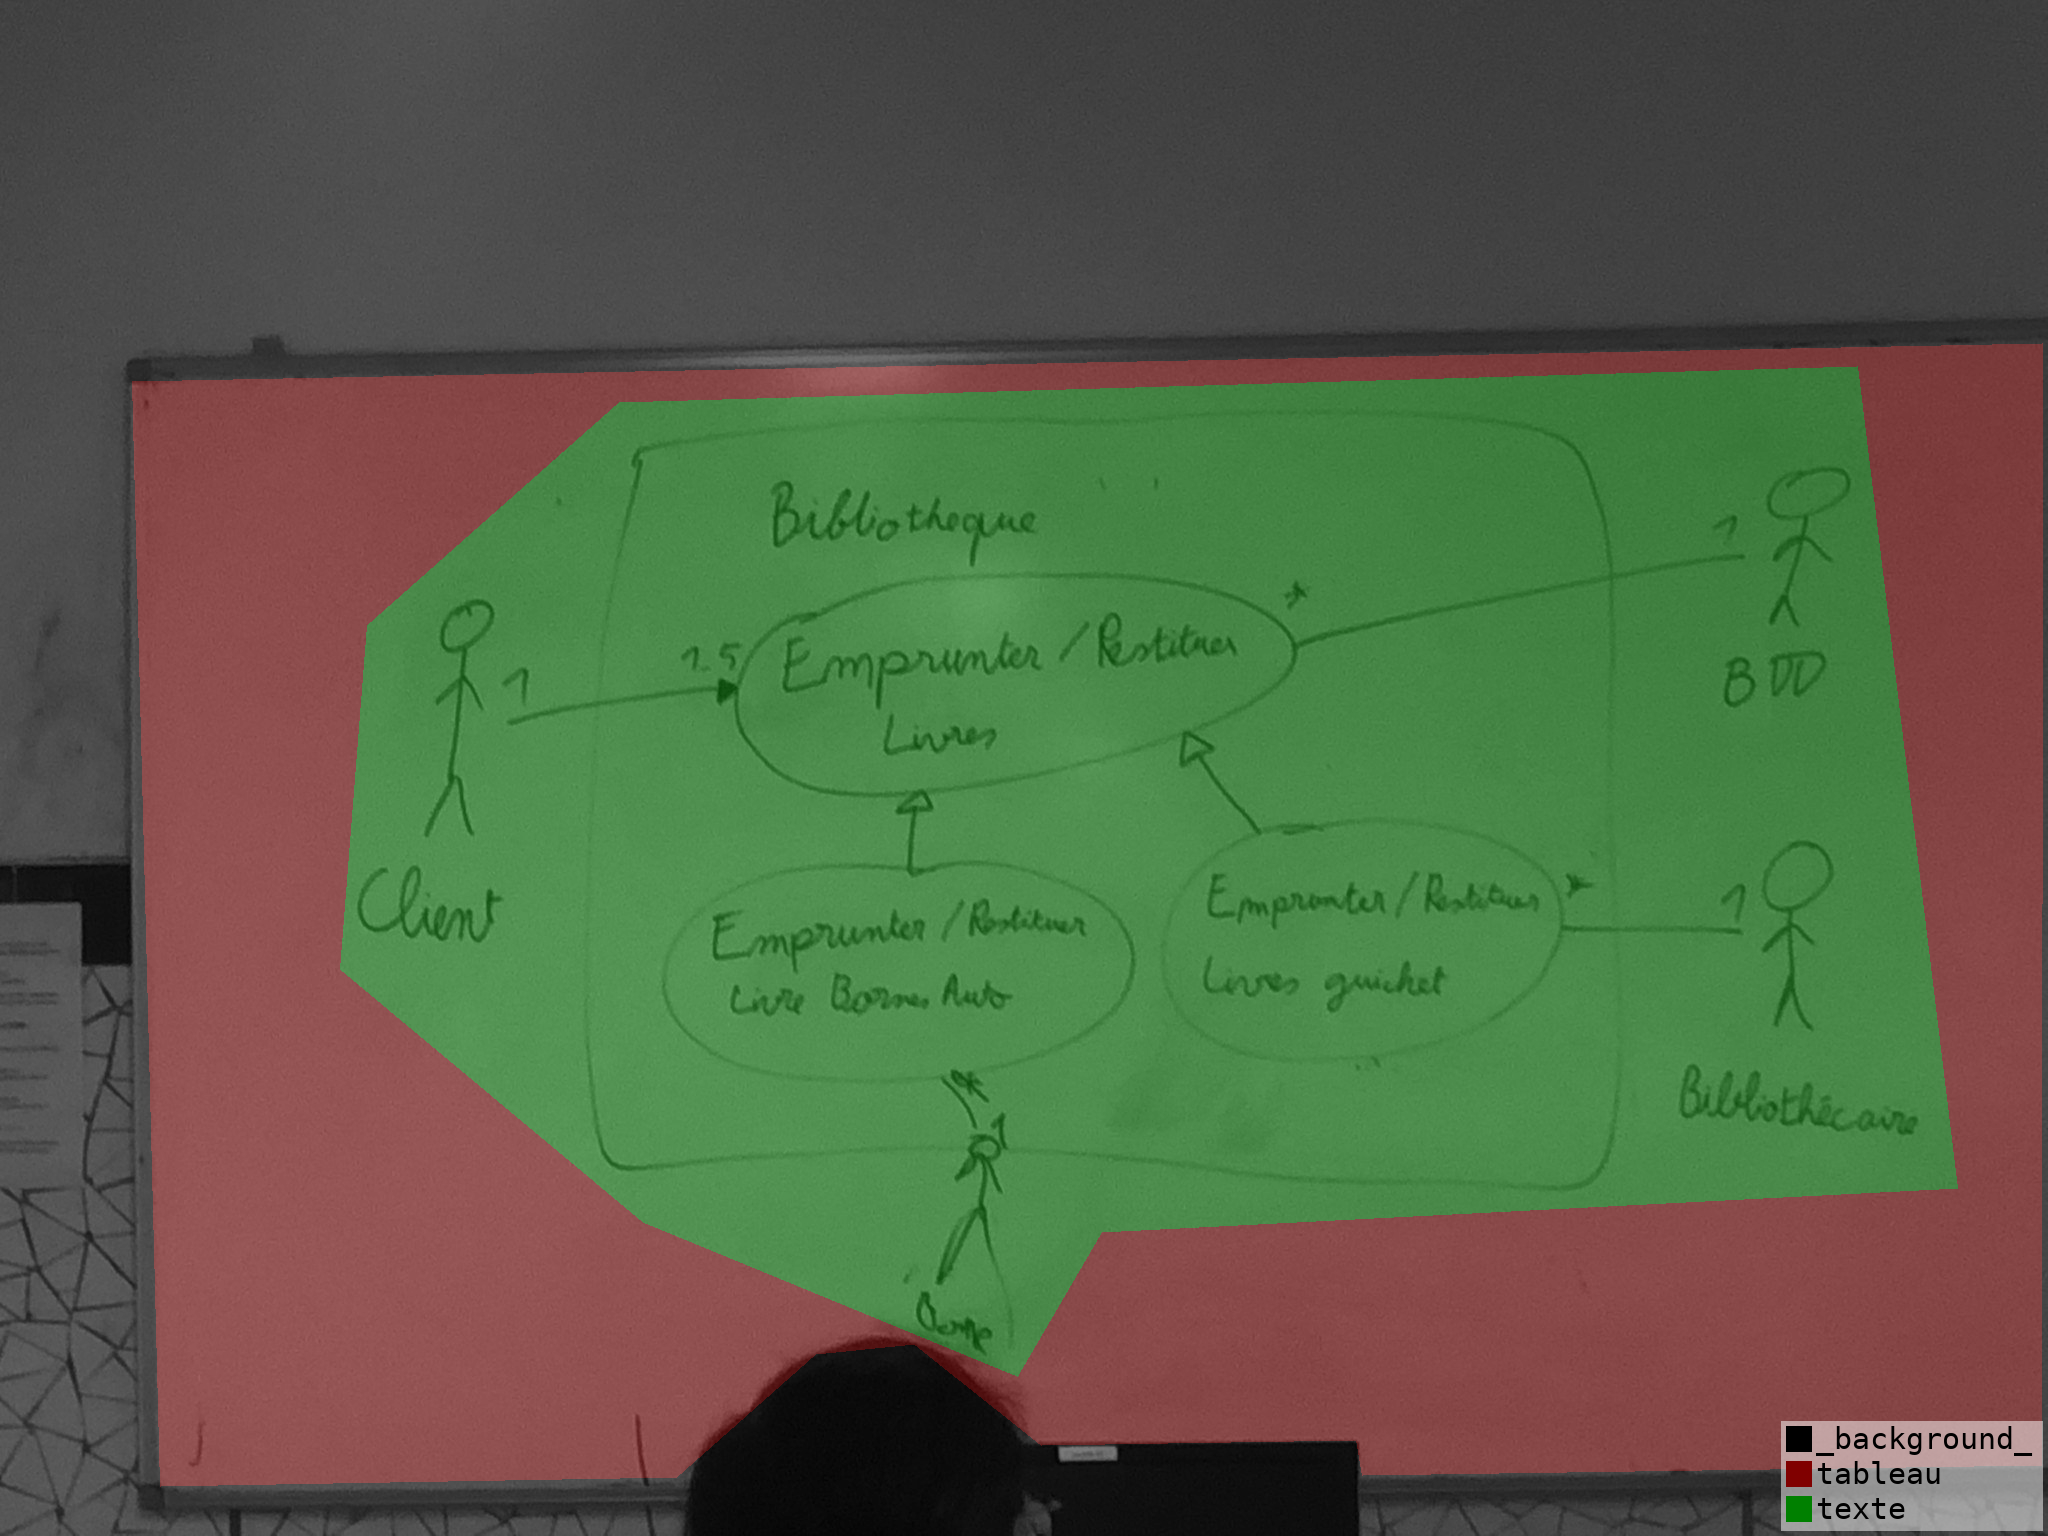 Bibliotheque
1
*
1
1..5
Emprunter / Restituer
Livres
BDD
Client
Emprunter / Restituer
Livre Bornes Auto
Emprunter / Restituer
Livres guichet
*
1
*
1
Bibliothécaire
Borne
_background_
tableau
texte